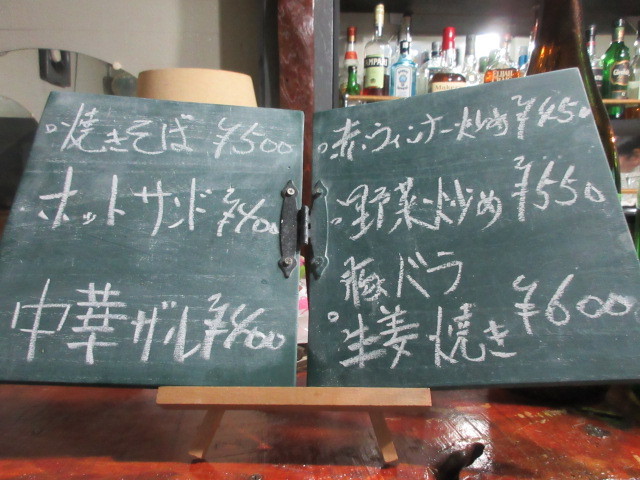 焼きそば ¥500
ホットサンド ¥400
中華ザル ¥400
赤・ウィンナー炒め ¥450
野菜炒め ¥550
豚バラ
生姜焼き ¥600
CAMPARI